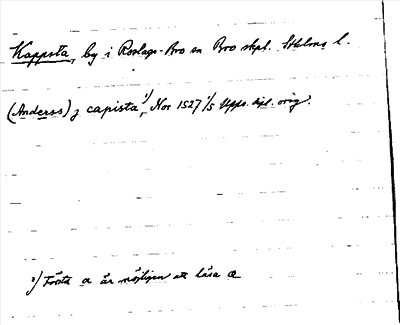 Kappsta, by i Roslags-Bro sn Bro skpl. Sthlms l.
(Anderss) j capista ¹⁾, Nor 1527 1/5 Upps. dpl. orig.
¹⁾ Första a är möjligen att läsa æ